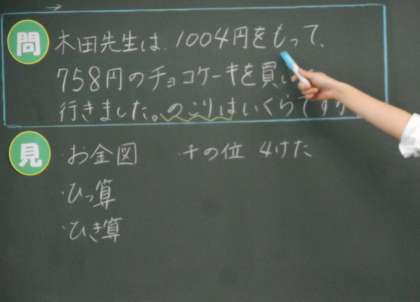 問 木田先生は、1004円をもって、
758円のチョコケーキを買いに
行きました。のこりはいくらですか
見 ・お金図 ・千の位 4けた
・ひっ算
・ひき算